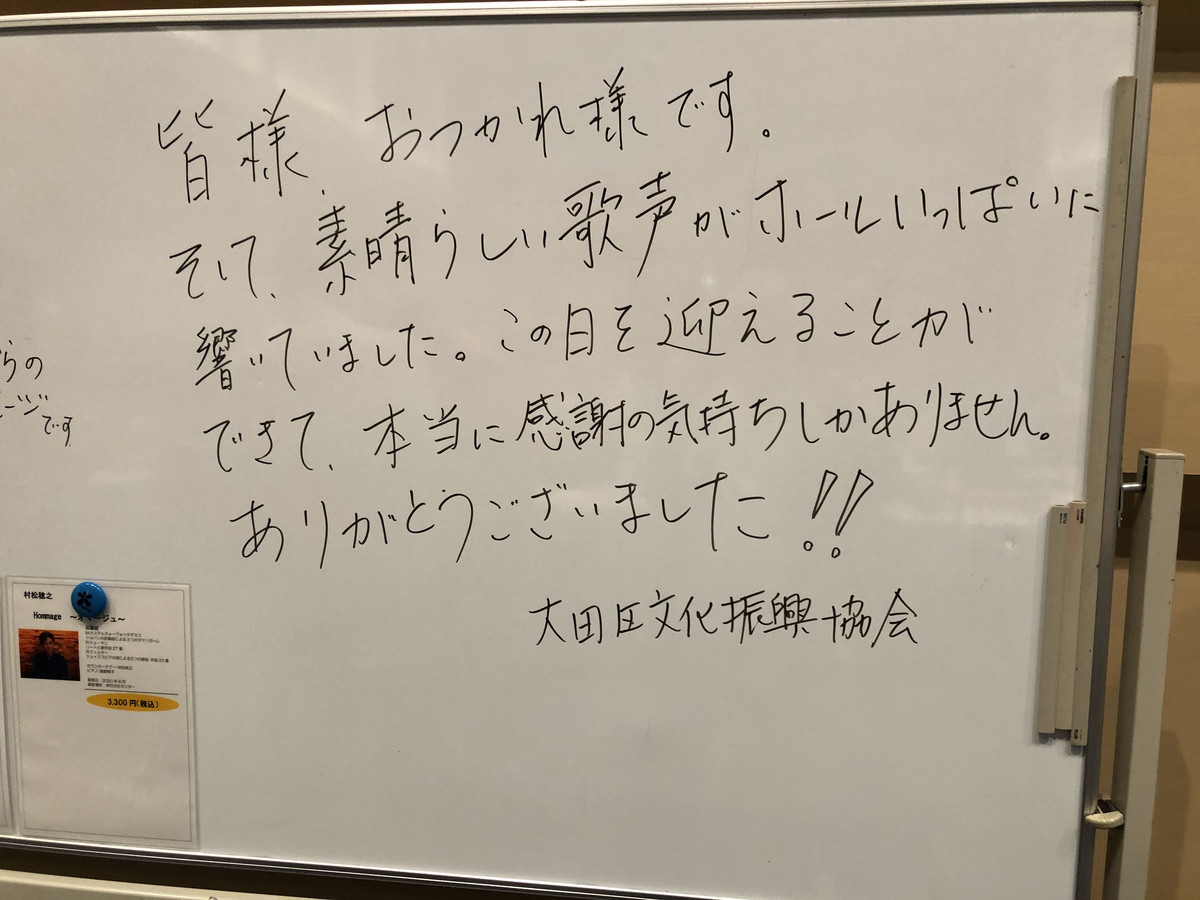 皆様、おつかれ様です。
そして、素晴らしい歌声がホールいっぱいに
響いていました。この日を迎えることが
できて、本当に感謝の気持ちしかありません。
ありがとうございました!!
大田区文化振興協会
らの
です
村松稔之
Hommage ～オマージュ～
3,300円(税込)